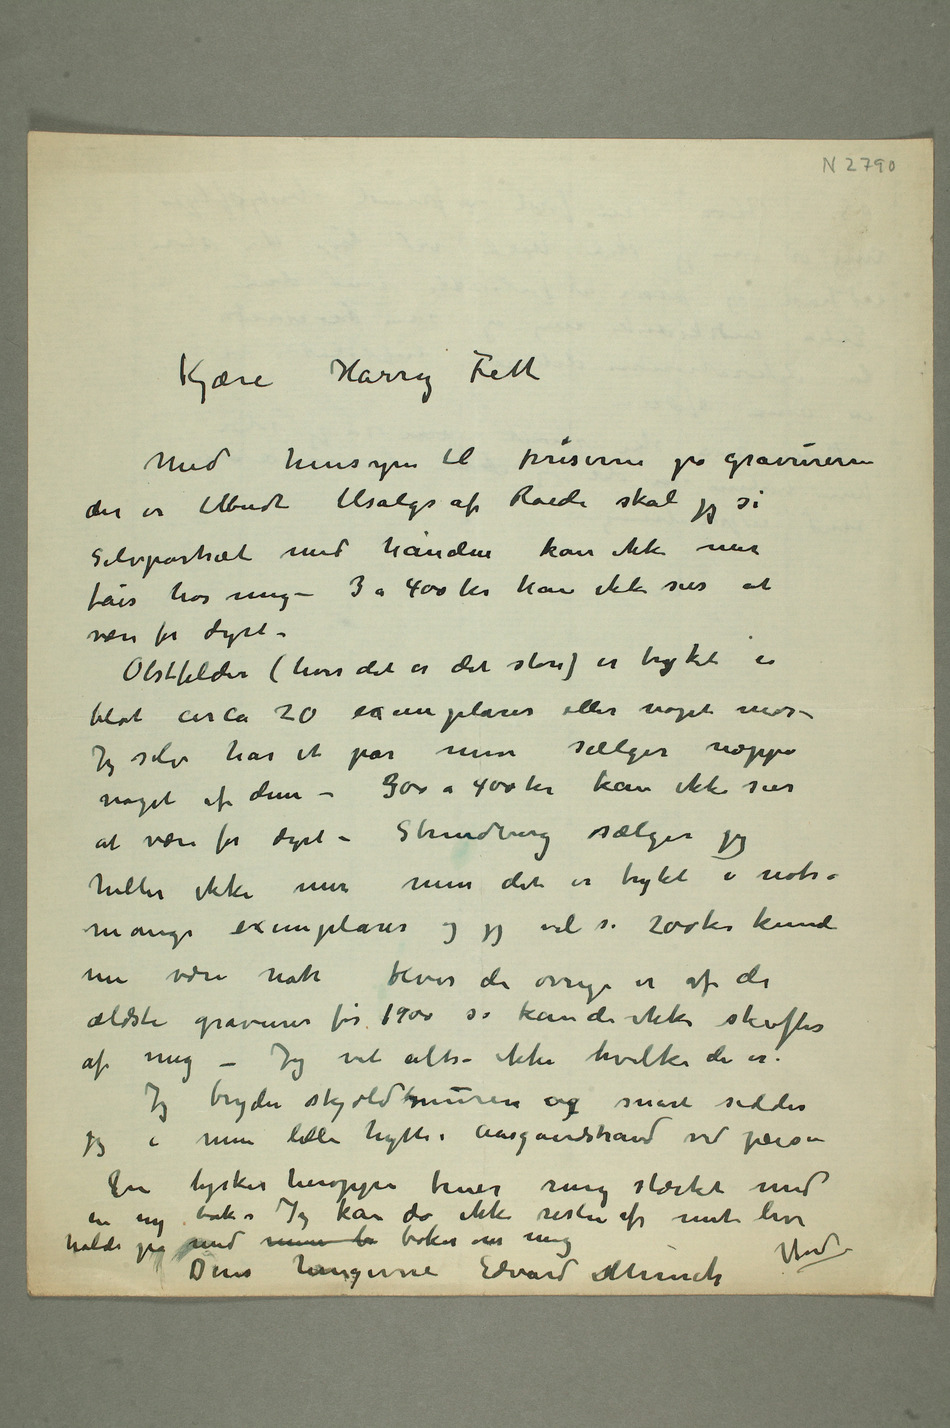 N 2790
Kjære Harry Fett
Med hensyn til priserne på gravurerne
der er tilbudt tilsalgs af Roede skal jeg si
Selvportræt med hånden kan ikke mer
fåes hos mig – 3 a 400 kr kan ikke sies at
være for dyrt –
Obstfelder (hvis det er det store) er trykket i
blot circa 20 exemplarer eller noget mer –
Jeg selv har et par men sælger neppe
noget af dem – 300 a 400 kr kan ikke sies
at være for dyrt – Strindberg sælger jeg
heller ikke mer men det er trykt i
mange exemplarer og jeg vil si 200 kr kunde
nu være Hvis de øvrige er af de
ældste gravurer før 1900 så kan de ikke skaffes
af mig – Jeg vet altså ikke hvilke de er.
Jeg bryder skjoldmuren og snart sidder
jeg i min lille hytte i Aasgaardstrand ved peisen
En tysker heroppe truer mig stærkt med
en ny bok – Jeg kan da ikke resten af mit liv
holde på med bøker om mig
Deres hengivne Edvard Munch
Vend